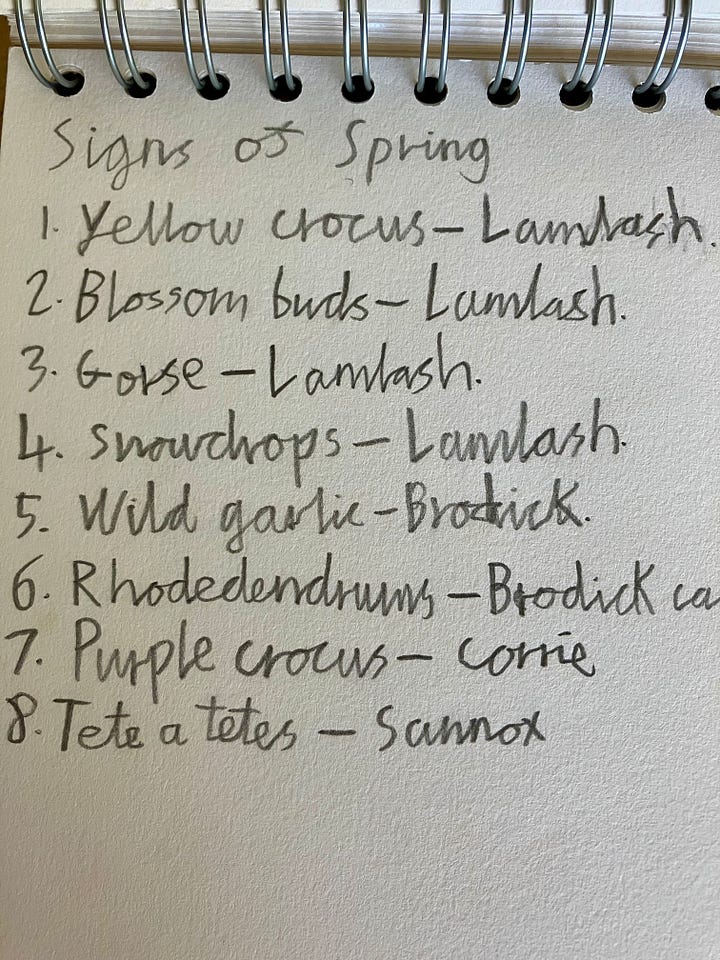 Signs of Spring
1. Yellow crocus – Lamlash.
2. Blossom buds – Lamlash.
3. Gorse – Lamlash.
4. Snowdrops – Lamlash.
5. Wild garlic – Brodick.
6. Rhodedendrums – Brodick ca
7. Purple crocus – Corrie
8. Tete a tetes – Sannox